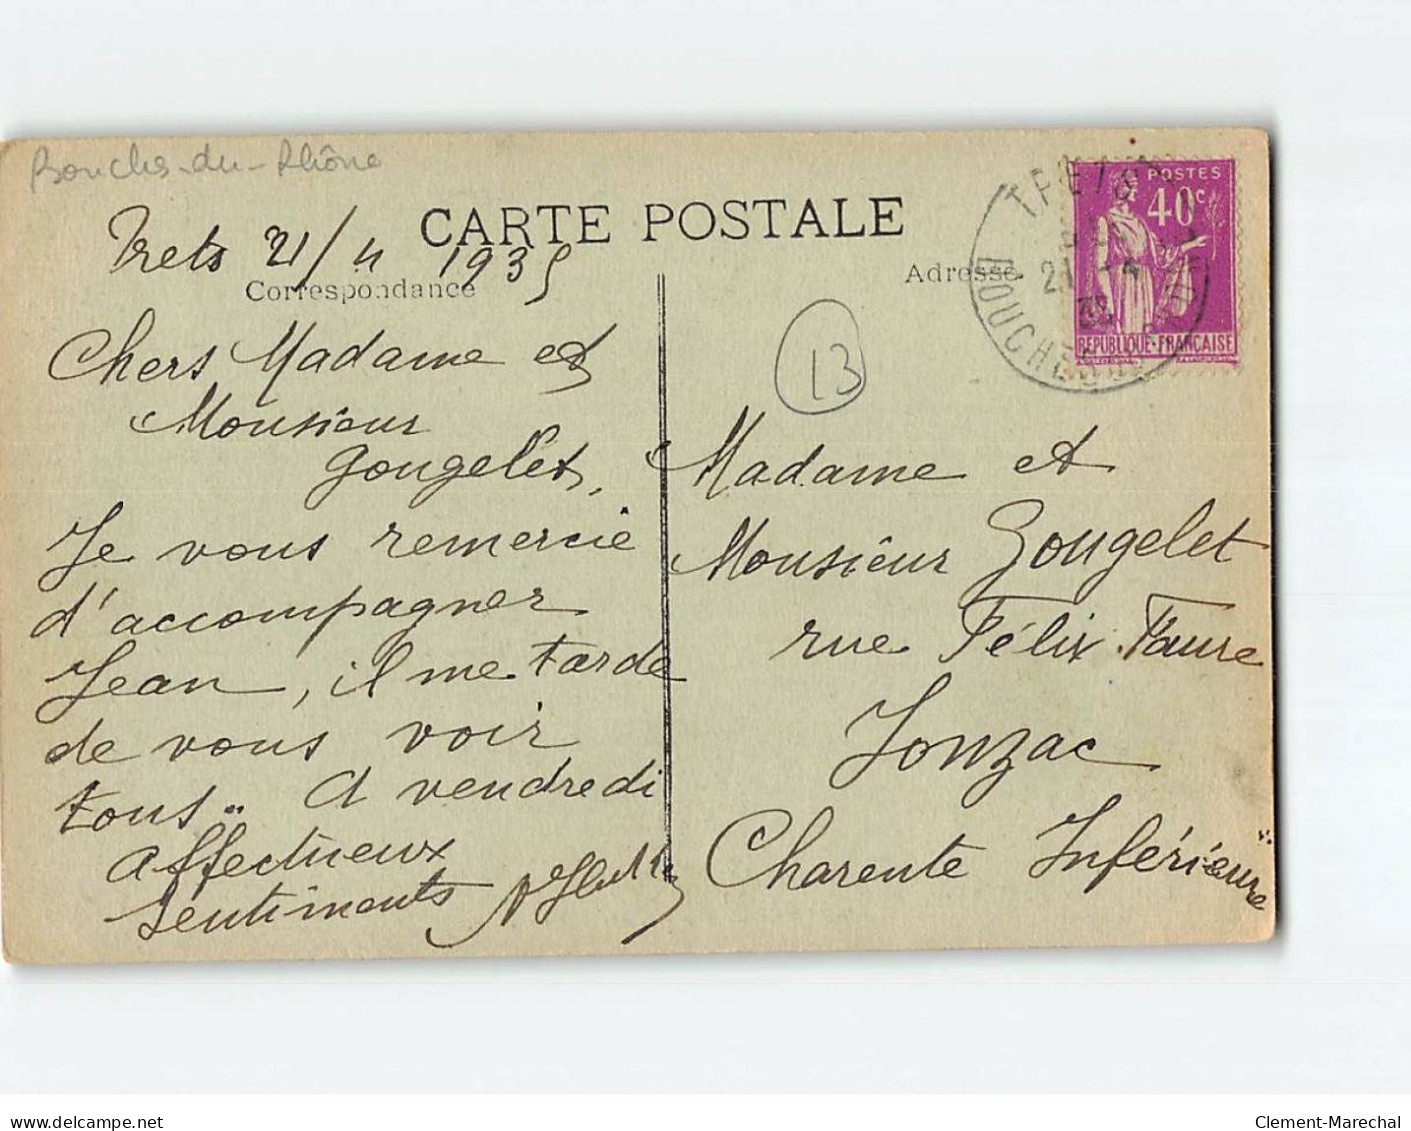 Bouches-du-Rhône
CARTE POSTALE
Trets 21/4 1935
Correspondance
Adresse
TRETS
21 -4
35
BOUCHES DU
POSTES
40c
REPUBLIQUE-FRANÇAISE
13
Chers Madame et
Monsieur
Gougelet,
Je vous remercie
d'accompagner
Jean, il me tarde
de vous voir
tous.. A vendredi
affectueux
sentiments
Madame et
Monsieur Gougelet
rue Félix Faure
Jonzac
Charente Inférieure
Clement-Marechal